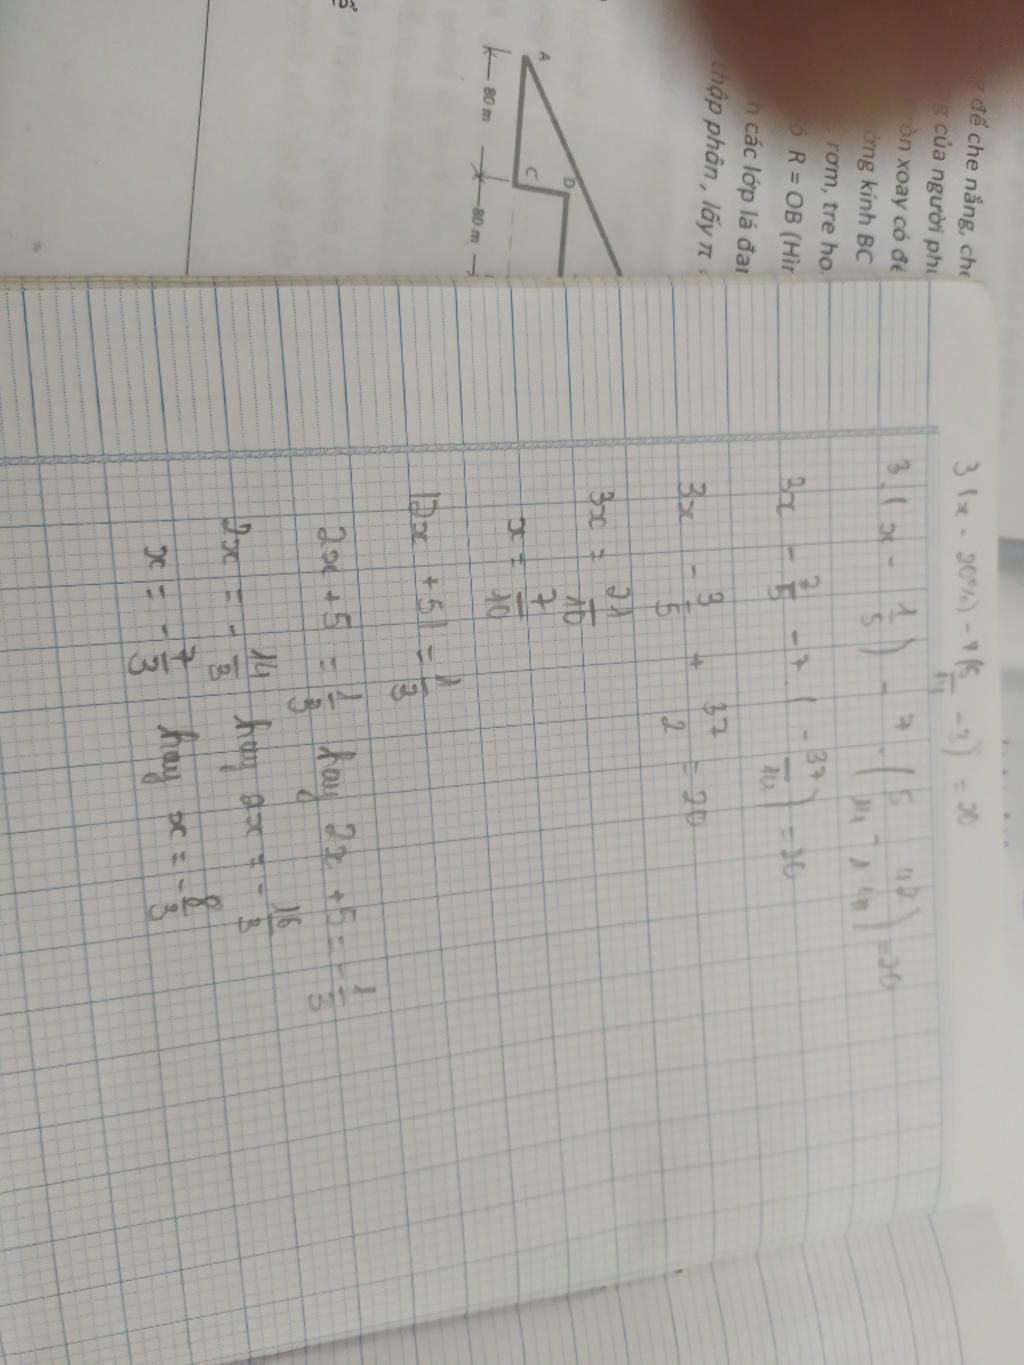 để che nắng, ch
của người ph
xoay có
kính BC
rơm, tre
R = OB
các lớp lá
thập phân, lấy π
A
C
D
80 m
80 m
3(x - 20%) - 7(5/14 - 3) = 20
3.(x - 1/5) - 7.(5/14 - 42/14) = 20
3x - 3/5 - 7.(-37/14) = 20
3x - 3/5 + 37/2 = 20
3x = 21/10
x = 7/10
|2x + 5| = 1/3
2x + 5 = 1/3 hay 2x + 5 = -1/3
2x = -14/3 hay 2x = -16/3
x = -7/3 hay x = -8/3